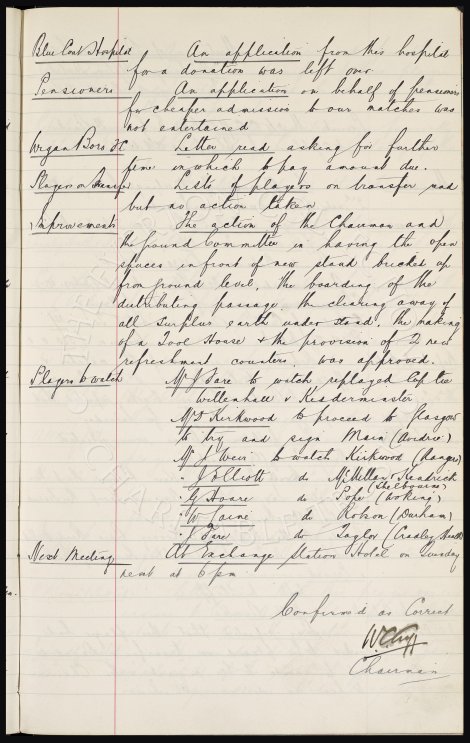 Blue Coat Hospital An application from this hospital
for a donation was left over
Pensioners An application on behalf of pensioners
for cheaper admission to our matches was
not entertained
Wigan Boro FC Letter read asking for further
time in which to pay amount due.
Players on Transfer Lists of players on transfer read
but no action taken
Improvements The action of the Chairman and
the Ground Committee in having the open
spaces in front of new stand bricked up
from ground level, the boarding of the
distributing passage, the clearing away of
all surplus earth under stand, the making
of a Tool House & the provision of 2 new
refreshment counters, was approved.
Players to watch Mr J Sare to watch replayed Cup tie
Willenhall v Kidderminster
Mr D Kirkwood to proceed to Glasgow
to try and sign Main (Airdrie)
Mr J Weir to watch Kirkwood (Rangers)
" J Elliott do McMillan & Kendrick
(Shelbourne)
" G Hoare do Pope (Woking)
" W Laine do Robson (Durham)
" J Sare do Taylor (Cradley Heath)
Next Meeting At Exchange Station Hotel on Tuesday
next at 6 pm
Confirmed as Correct
Chairman